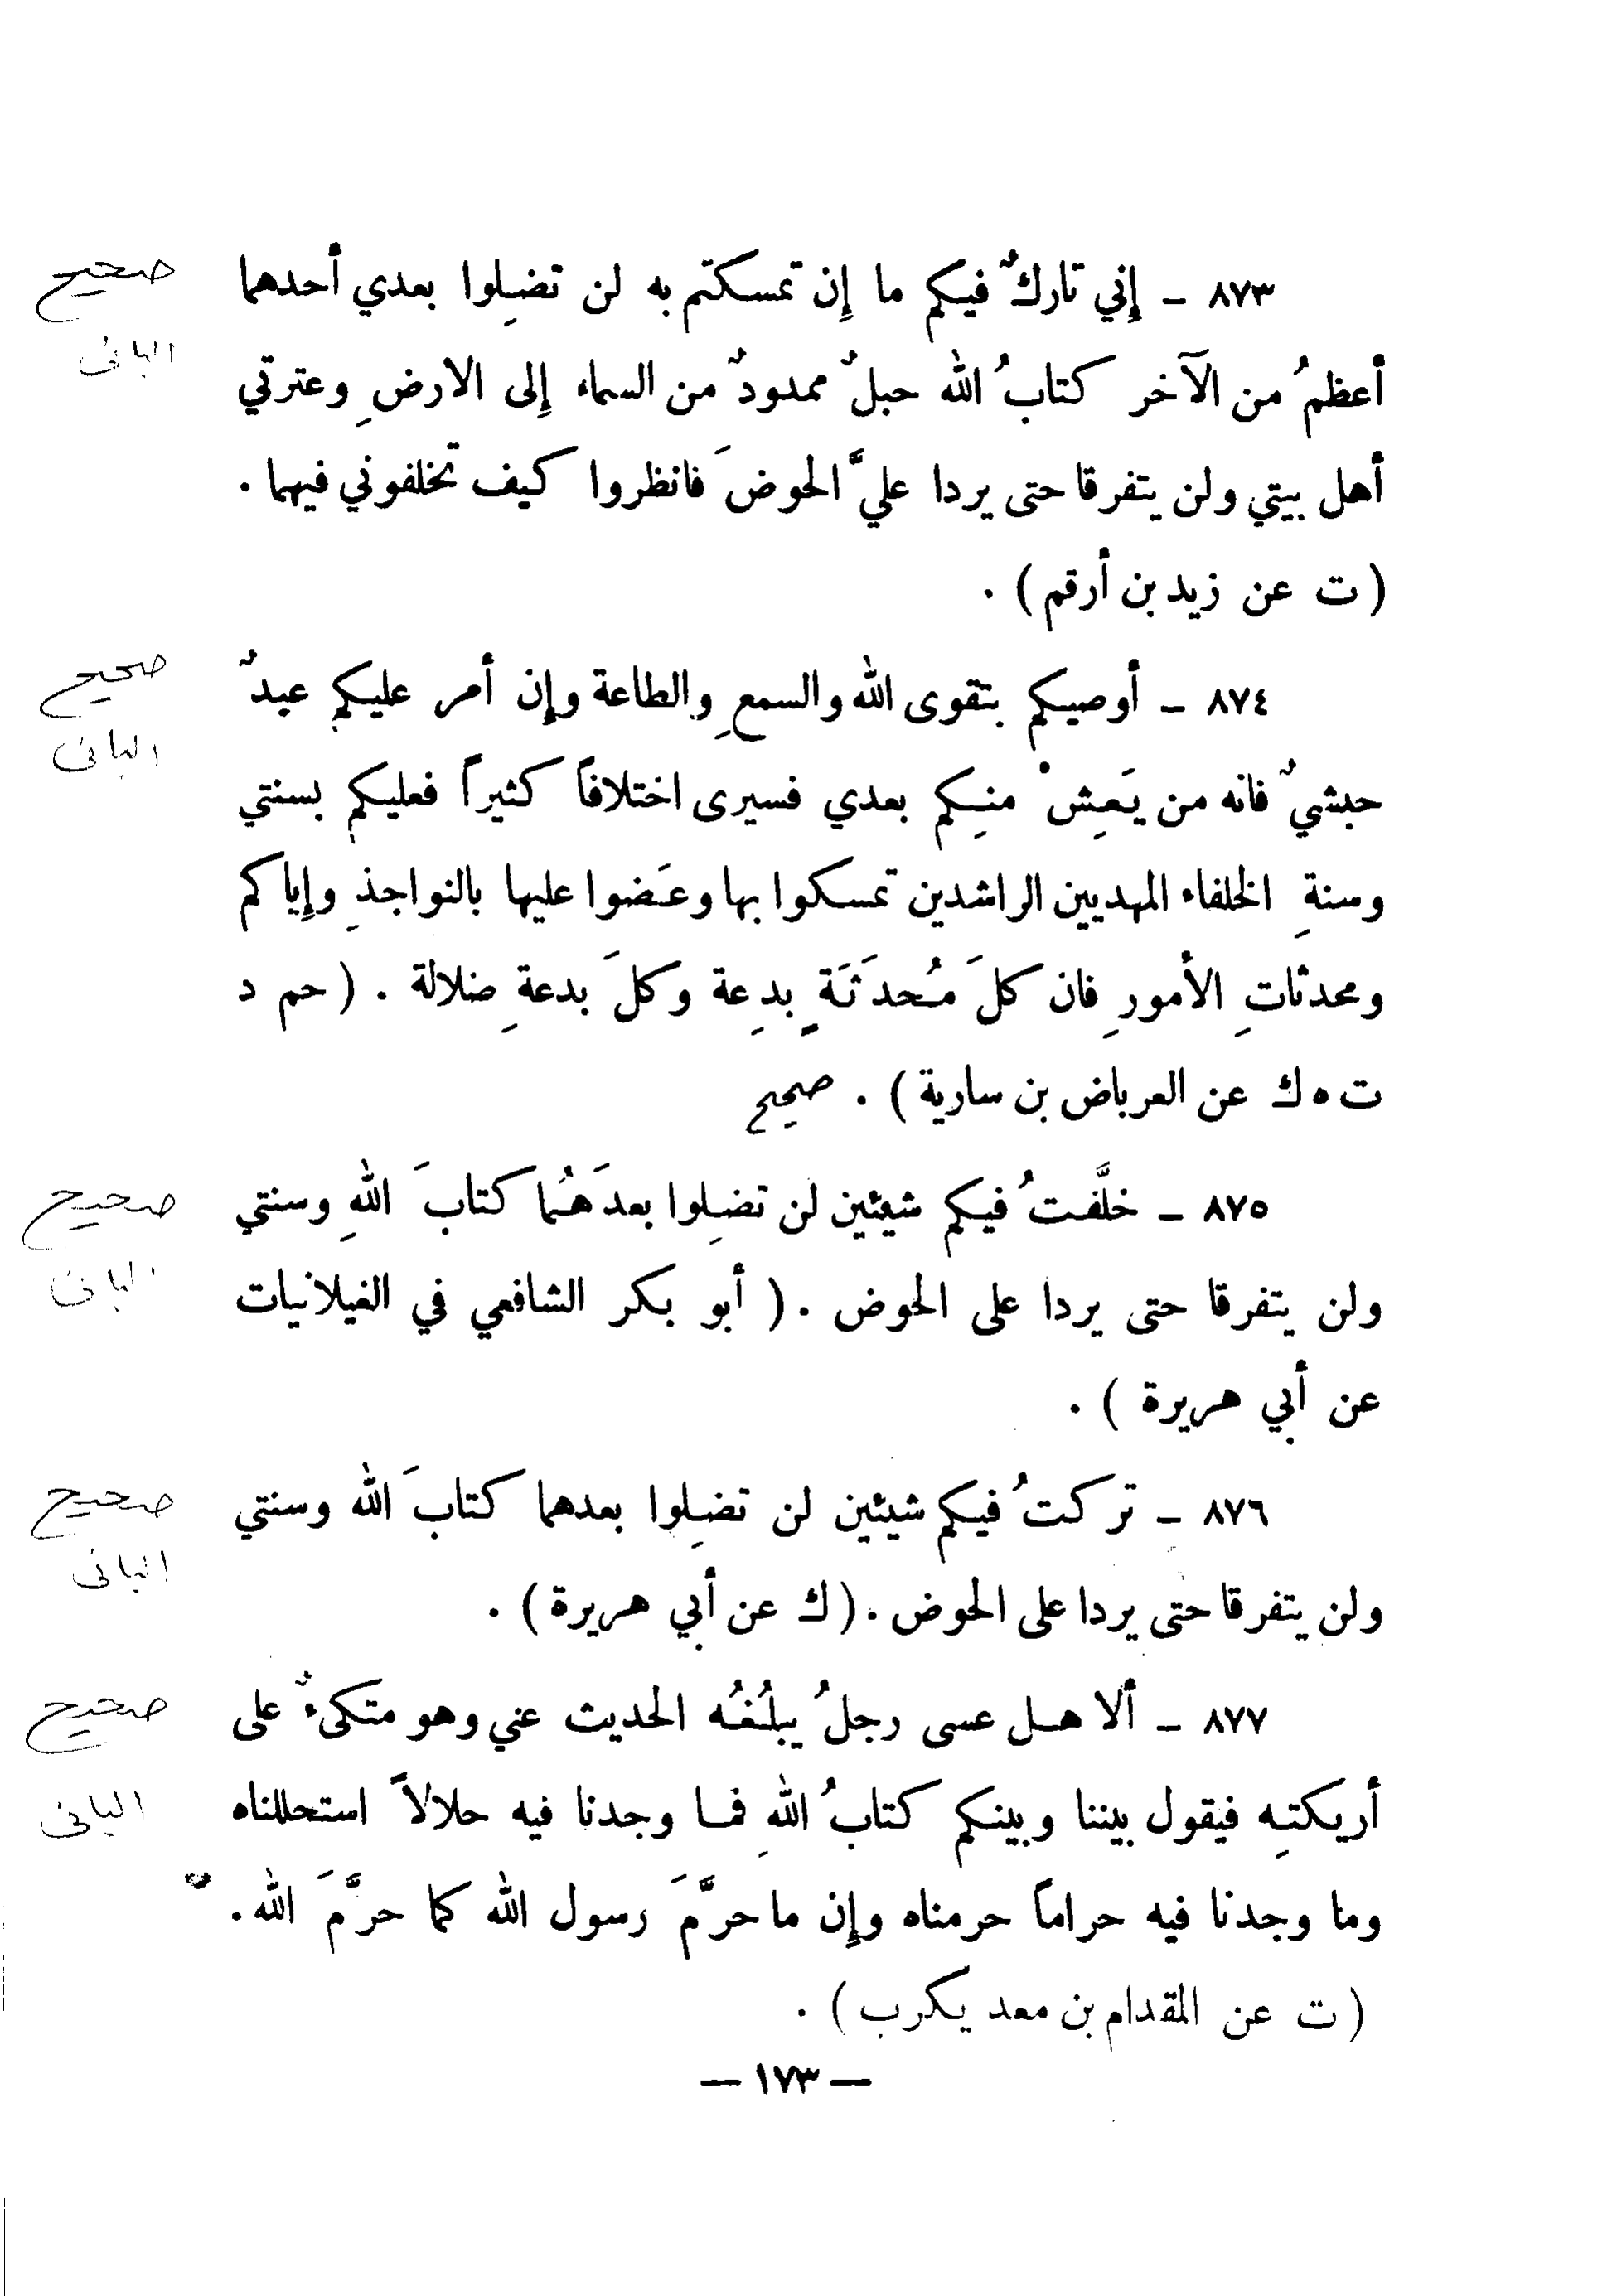 ٨٧٣ ـ إِني تاركٌ فيكم ما إِن تمسكتم به لن تضِلوا بعدي أحدهما
أعظمُ من الآخر كتابُ الله حبلٌ ممدودٌ من السماء إِلى الارضِ وعترتي
أهل بيتي ولن يتفرقا حتى يردا عليَّ الحوضَ فانظروا كيف تخلفوني فيهما .
( ت عن زيد بن أرقم ) .
صحيح
البانى
٨٧٤ ـ أوصيكم بتقوى الله والسمعِ والطاعة وإِن أمر عليكم عبدٌ
حبشيٌ فانه من يَعِشْ منِكم بعدي فسيرى اختلافاً كثيراً فعليكم بسنتي
وسنةِ الخلفاء المهديين الراشدين تمسكوا بها وعَضوا عليها بالنواجذِ وإِياكم
ومحدثاتِ الأمورِ فان كلَ مُحدَثَةٍ بدِعة وكلَ بدعةِ ضلالة . ( حم د
ت ه ك عن العرباض بن سارية ) . صحيح
صحيح
البانى
٨٧٥ ـ خلَّفتُ فيكم شيئين لن تضِلوا بعدَهُما كتابَ اللهِ وسنتي
ولن يتفرقا حتى يردا على الحوض . ( أبو بكر الشافعي في الغيلانيات
عن أبي هريرة ) .
صحيح
البانى
٨٧٦ ـ تركتُ فيكم شيئين لن تضِلوا بعدهما كتابَ الله وسنتي
ولن يتفرقا حتى يردا على الحوض . ( ك عن أبي هريرة ) .
صحيح
البانى
٨٧٧ ـ ألا هل عسى رجلُ يبلُغُه الحديث عني وهو متكىءٌ على
أريكتهِ فيقول بيننا وبينكم كتابُ اللهِ فما وجدنا فيه حلالاً استحللناه
وما وجدنا فيه حراماً حرمناه وإِن ما حرَّمَ رسول الله كما حرَّمَ الله .
( ت عن المقدام بن معد يكرب ) .
صحيح
البانى
— ١٧٣ —